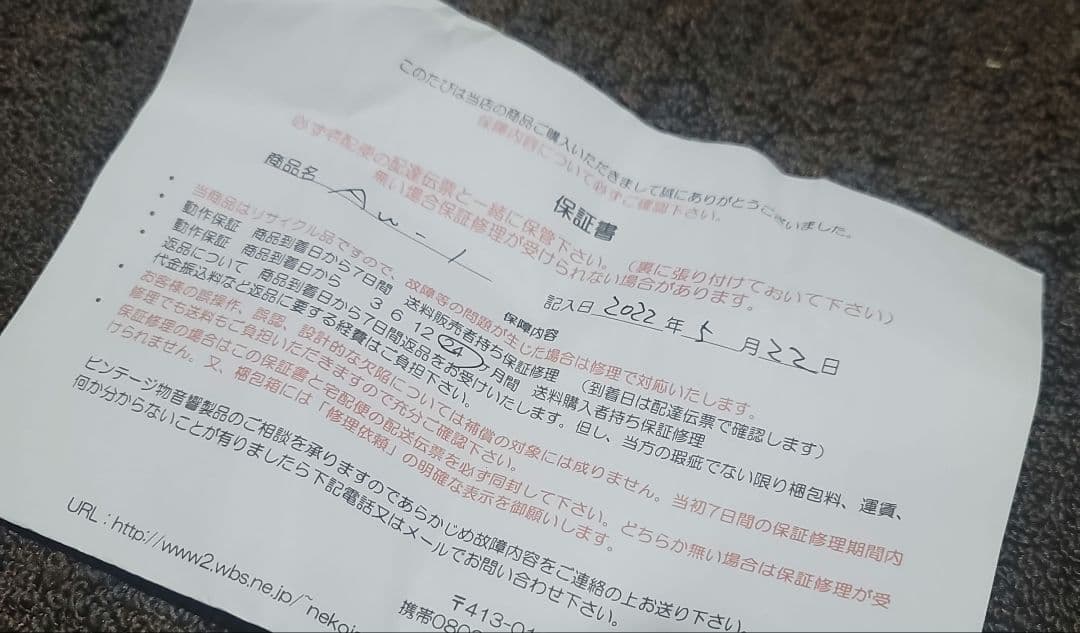 このたびは当店の商品ご購入いただきまして誠にありがとうございました。
保障内容について必ずご確認下さい。
保証書
必ず宅配業の配達伝票と一緒に保管下さい。（裏に張り付けておいて下さい）
無い場合保証修理が受けられない場合があります。
商品名 Au-1 記入日 2022 年 5 月 22 日
保障内容
・当商品はリサイクル品ですので、故障等の問題が生じた場合は修理で対応いたします。
・動作保証 商品到着日から7日間 送料販売者持ち保証修理 （到着日は配達伝票で確認します）
・動作保証 商品到着日から 3 6 12 24 ヶ月間 送料購入者持ち保証修理
・返品について 商品到着日から7日間返品をお受けいたします。但し、当方の瑕疵でない限り梱包料、運賃、
代金振込料など返品に要する経費はご負担下さい。
・お客様の誤操作、誤認、設計的な欠陥については補償の対象には成りません。当初7日間の保証修理期間内
修理でも送料もご負担いただきますので充分ご確認下さい。
・保証修理の場合はこの保証書と宅配便の配送伝票を必ず同封して下さい。どちらか無い場合は保証修理が受
けられません。又、梱包箱には「修理依頼」の明確な表示を御願いします。
ビンテージ物音響製品のご相談を承りますのであらかじめ故障内容をご連絡の上お送り下さい。
何か分からないことが有りましたら下記電話又はメールでお問い合わせ下さい。
〒413-01
URL：http://www2.wbs.ne.jp/~nekoi
携帯080